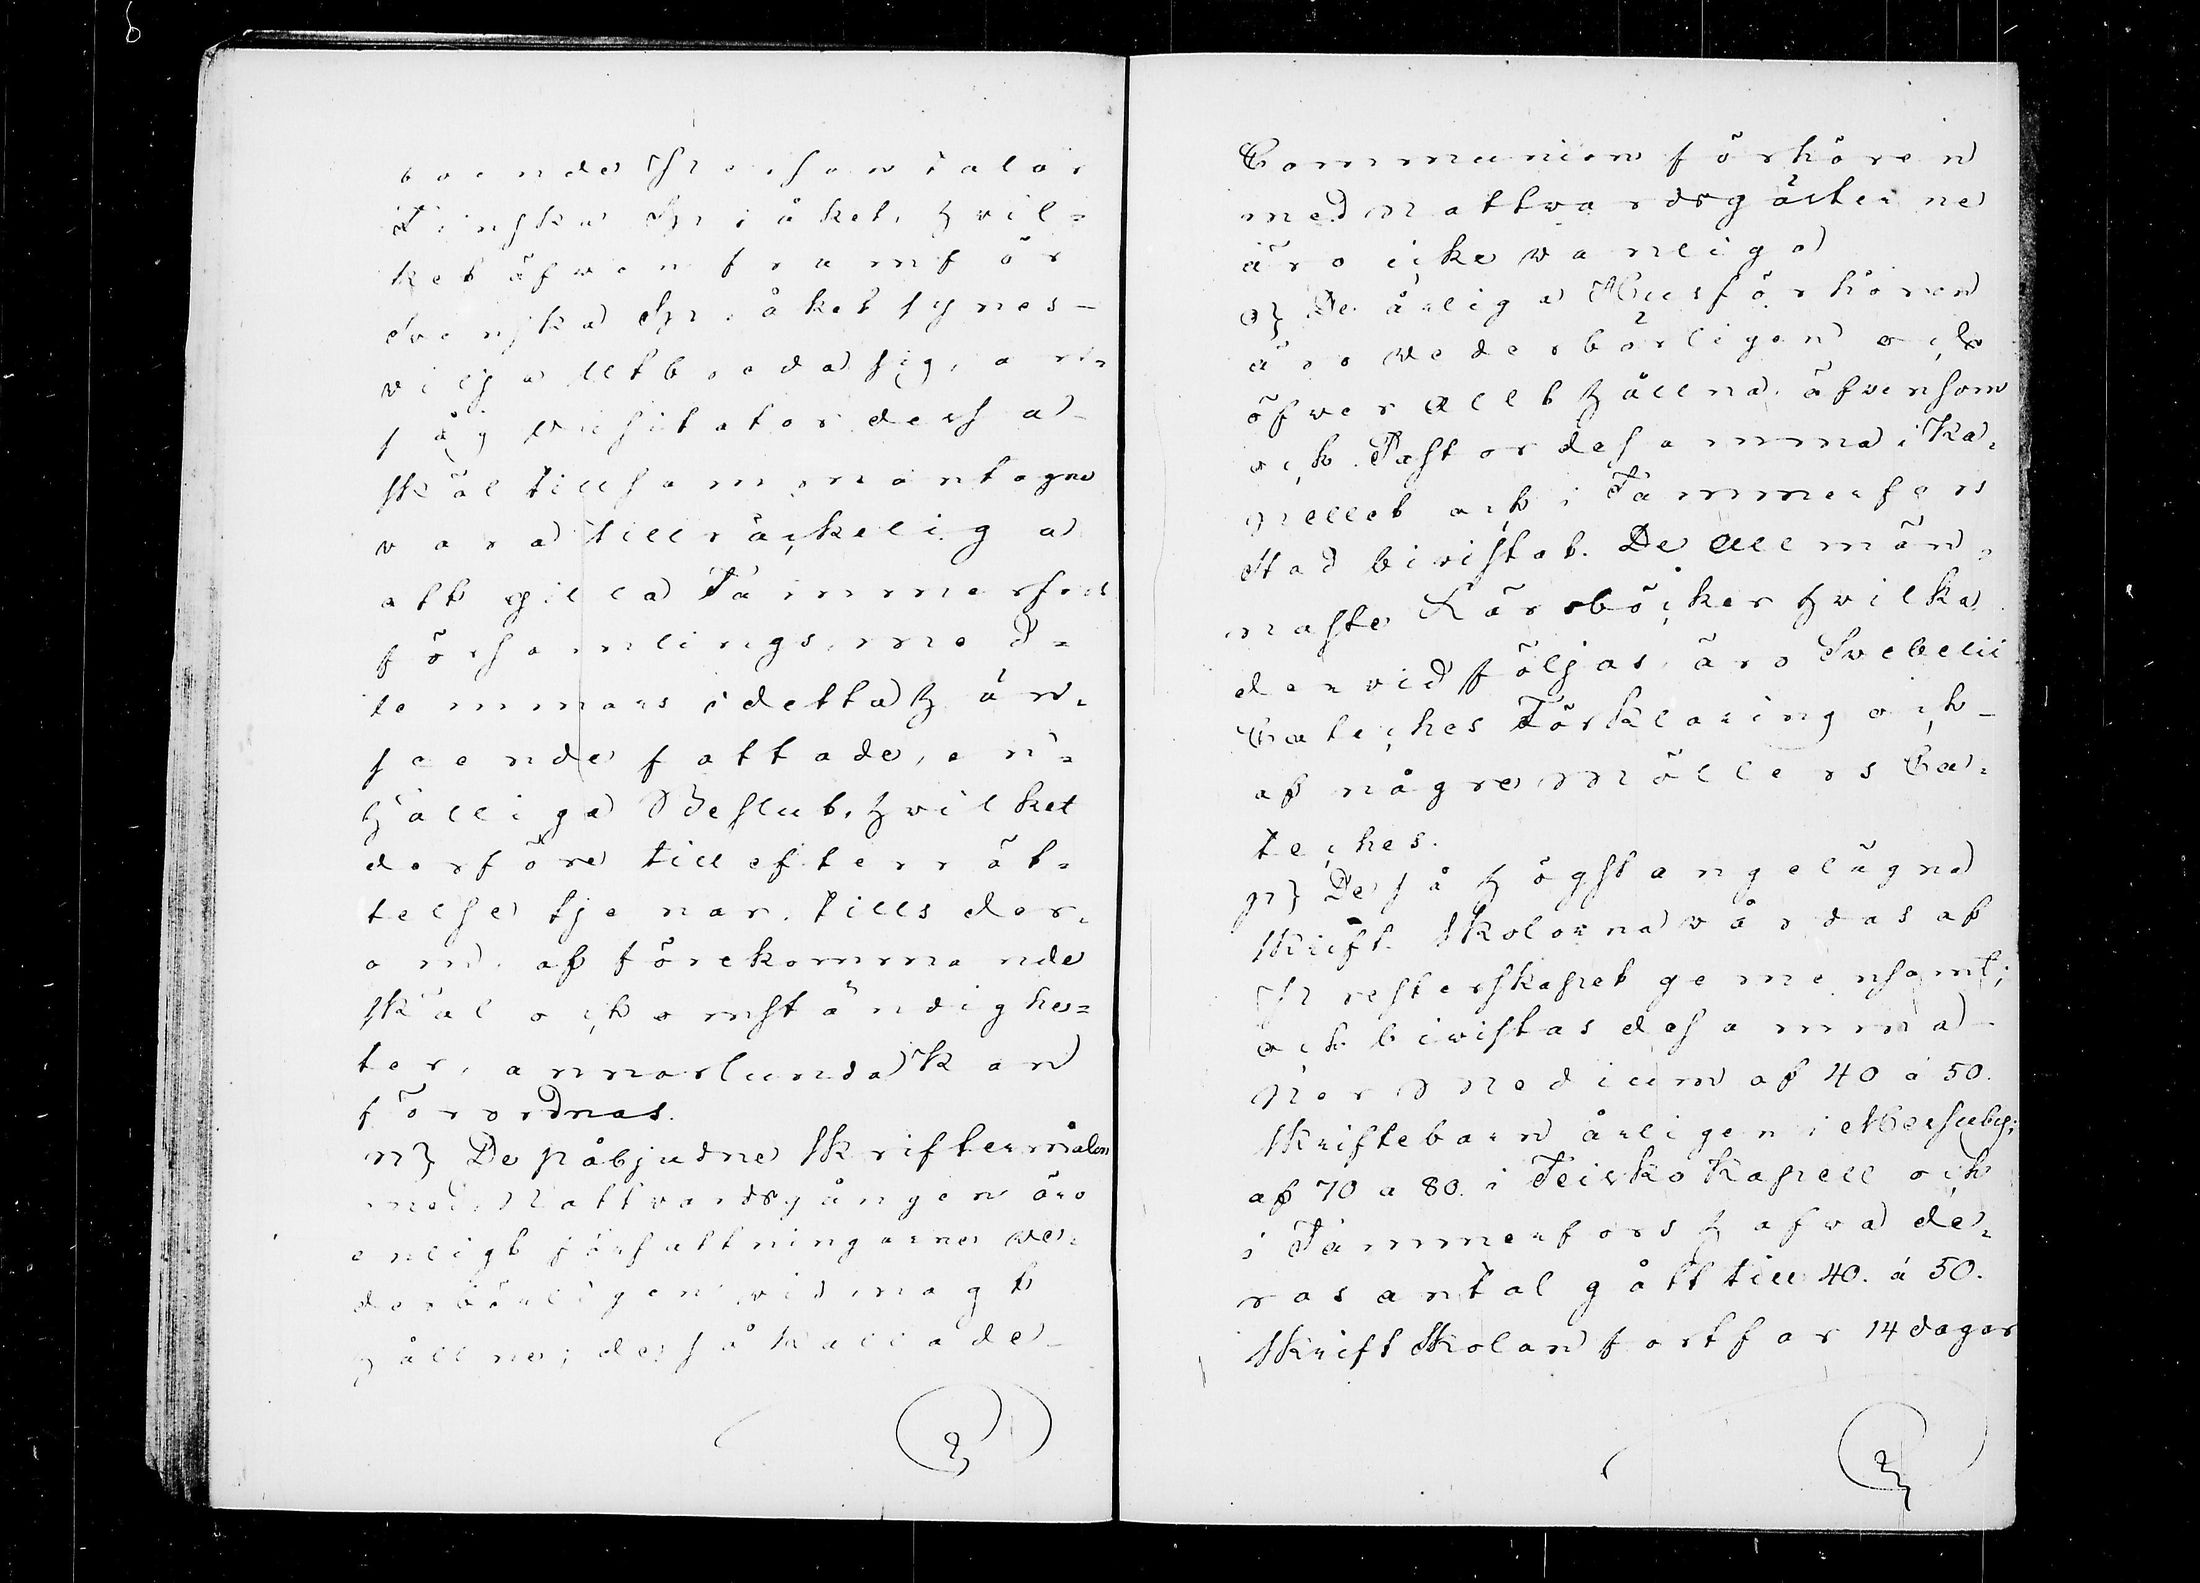 boende Personer talar
Finska Språket, hvil=
ket äfwen framför
Svenska Språket synes
vilja utbreda sig, an=
såg Visitator dessa
skäl tillsammantagne
vara tillräckeliga
att gilla Tammerfors
församlings med=
lemmars i detta hän=
seende fattade, en=
hälliga Beslut, hvilket
derföre till efterrät=
telse tjenar, tills der=
om, af förekommande
skäl och omständighe=
ter, annorlunda kan
förordnas.
n} De påbjudne Skriftermålen
med Nattvardsgången äro
enligt författningarne we=
derbörligen vid magt
hållne; de så kallade
Communion förhören
med Nattvardsgästerne
äro icke wanliga
o} De årliga Husförhören
äro wederbörligen och
öfwer allt hållna, äfvensom
och Pastor desamma i Ka=
pellet och i Tammerfors
Stad bivistat. De allmän=
naste Läroböcker hvilka
dervid följas, äro Svebelii
Cateches Förklaring och
af någre Möllers Ca=
teches.
p} De så högst angelägna
Skrift Skolorna vårdas af
Presterskapet gemensamt;
och bivistas desamma
per Medium af 40 à 50.
Skriftebarn årligen i Messuby;
af 70 a 80. i Teisko Kapell och
i Tammerfors hafva de=
ras antal gått till 40. à 50.
Skrift Skolan fortfar 14 dagar